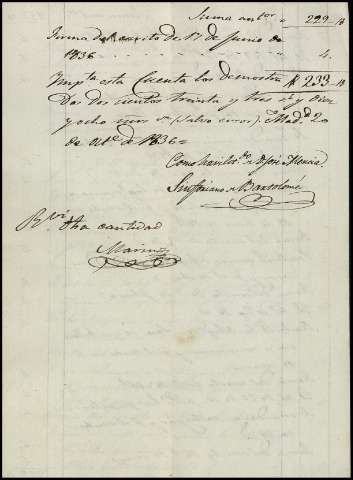 Suma antor " 229 - 18
Firma del escrito de 17 de Junio de
1836 - - - - 4.
Impta esta Cuenta los demostra R 233 - 18
Dos Dos cientos treinta y tres rs y diez
y ocho mrs vn (salvo error). Madd 20
de de 1836 =
Como havilitdo de D José
Sinforiano de Bartolomé
Rvi dha cantidad
Marin